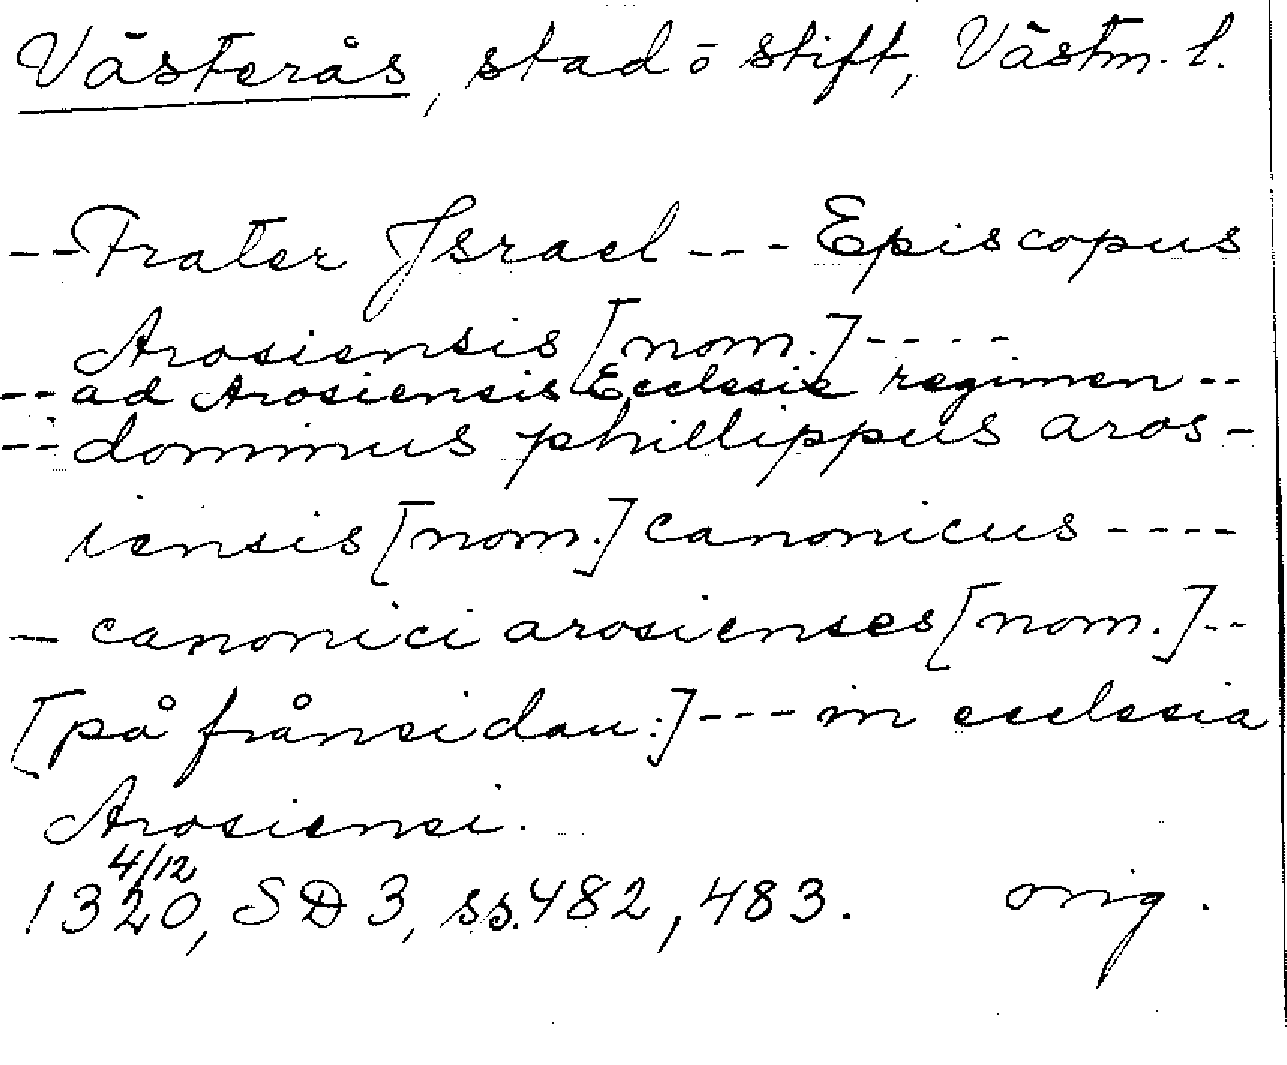 Västerås, stad ō stift, Västm. l.
-- Frater Israel --- Episcopus
Arosiensis [nom.] ----
-- ad Arosiensis Ecclesie regimen --
-- dominus phillippus aros-
iensis [nom.] canonicus ----
- canonici arosienses [nom.] --
[på frånsidan:] --- in ecclesia
Arosiensi.
4/12
1320, SD 3, ss. 482, 483. orig.